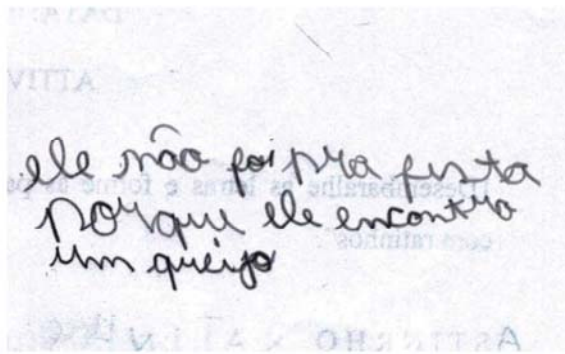 ele não foi pra festa
porque ele encontra
um queijo